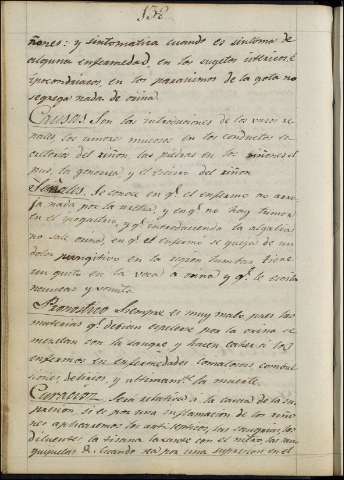 132
ñones: y sintomatica cuando es sintoma de
alguna enfermedad, en los sugetos istericos, è
ipocondriacos en los paroxismos de la gota no
segrega nada de orina.
Causas. Son las obstrucciones de los vasos re
nales los umores mucosos en los conductos es
cretorios del riñon, las piedras en los riñones el
pus, la gonorrea y el escirro del riñon
Señales. Se conoce en q.e el enfermo no arro
ja nada por la uretra, y en q.e no hay tumor
en el ipogastrio, y q.e introduciendo la algalia
no sale orina, en q.e el enfermo se queja de un
dolor pungitivo en la region lumbar, tiene
un gusto en la boca a orina y q.e le escita
nauseas y vomito.
Pronostico Siempre es muy malo, pues las
materias q.e debian espelerse por la orina se
mezclan con la sangre y hacen caher à los
enfermos en enfermedades comatosas combul
siones, delirios, y ultimam.te la muerte.
Curacion. Será relativa à la causa de la su
presion, si es por una inflamacion de los riño
nes aplicaremos los antisepticos, las sangrias, los
diluentes, la tisana laxante con el nitro, las san
guijuelas &. Cuando va por una supresion en el